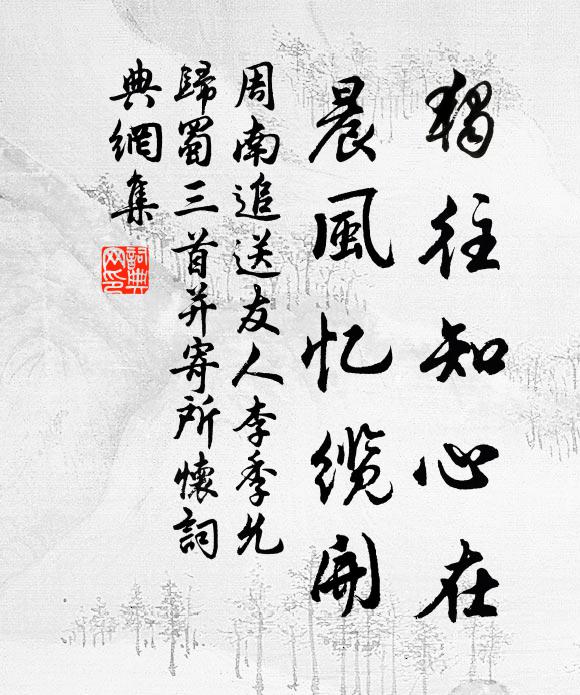 獨往知心在
晨風忆纜開
周南追送友人李季允
歸蜀三首并寄所懷詞
典網集
詞典
网印